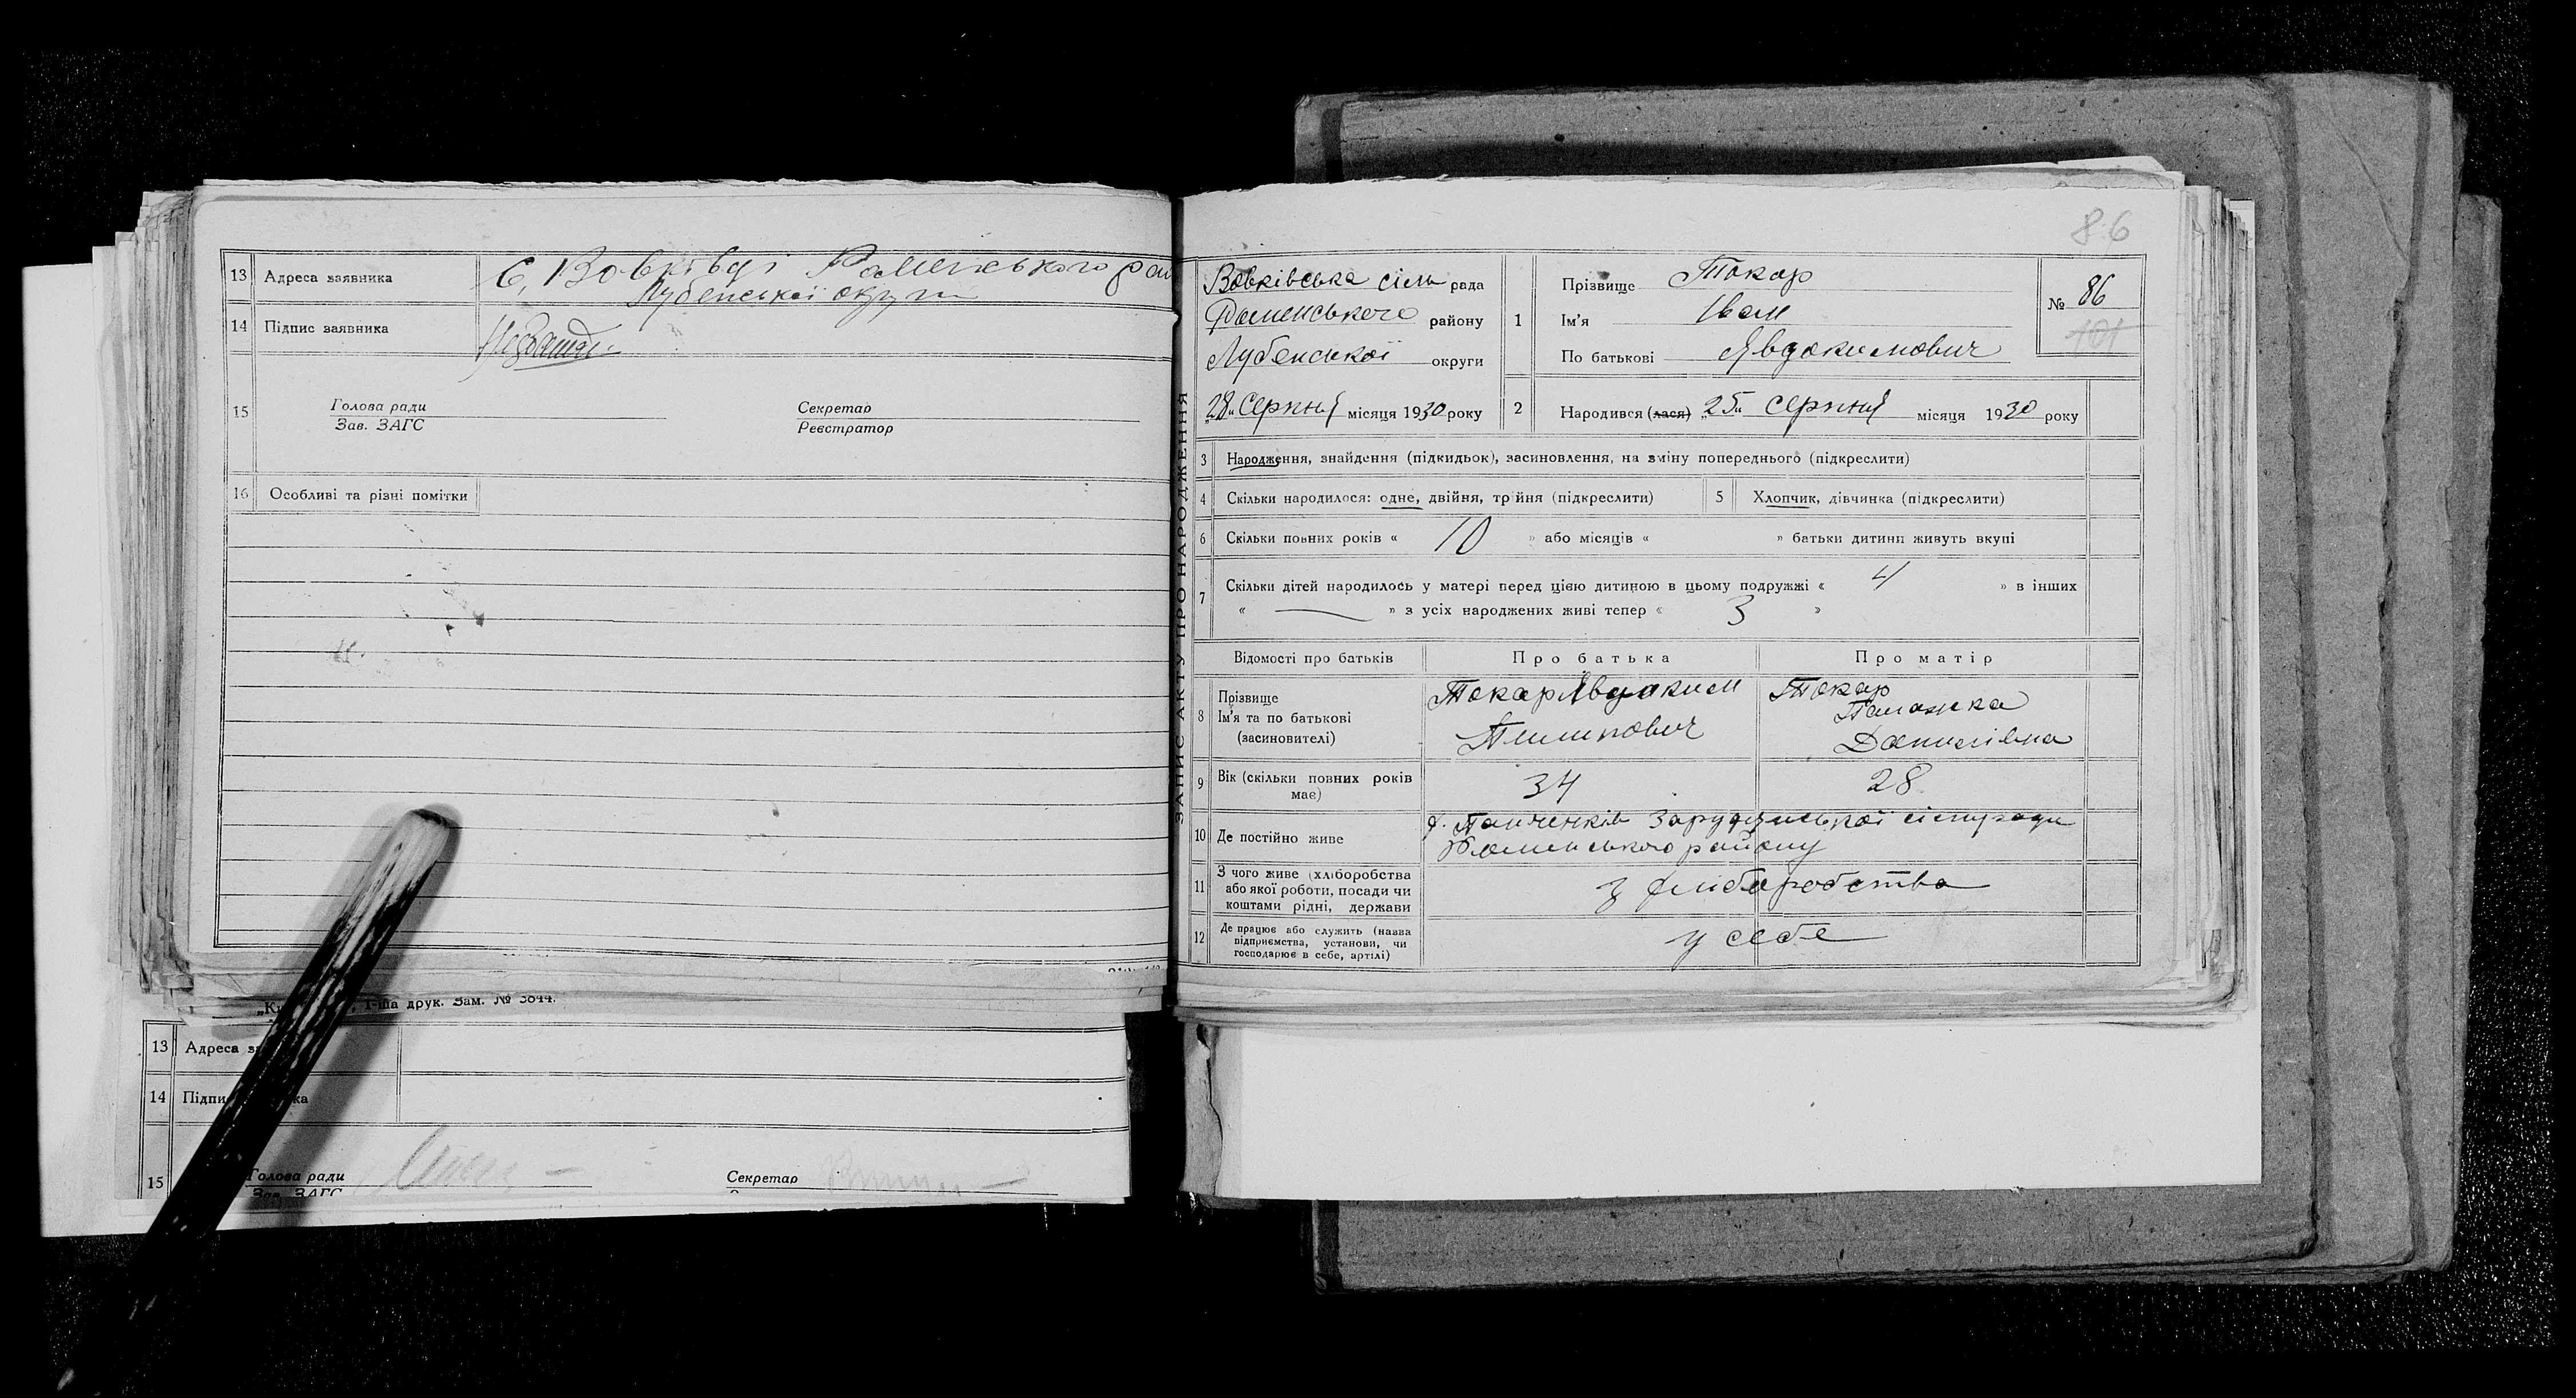 13 Адреса заявника С. Вовківці Роменського рай
Лубенської округи
14 Підпис заявника
15 Голова ради Секретар
Зав. ЗАГС Реєстратор
16 Особливі та різні помітки
І-ша друк. Зам. № 3844.
13 Адреса
14
15 Голова ради Секретар
Зав. ЗАГС
ЗАПИС АКТУ ПРО НАРОДЖЕННЯ
86
Вовківська сіль рада
Роменського району
Лубенської округи
„28" Серпня місяця 1930 року
1 Прізвище Токар
Ім'я Іван
По батькові Явдокимович
№ 86
101
2 Народився (лася) „25" серпня місяця 1930 року
3 Народження, знайдення (підкидьок), засиновлення, на зміну попереднього (підкреслити)
4 Скільки народилося: одне, двійня, трійня (підкреслити) 5 Хлопчик, дівчинка (підкреслити)
6 Скільки повних років « 10 » або місяців « » батьки дитини живуть вкупі
7 Скільки дітей народилось у матері перед цією дитиною в цьому подружжі « 4 » в інших
« — » з усіх народжених живі тепер « 3 »
Відомості про батьків Про батька Про матір
8 Прізвище
Ім'я та по батькові
(засиновителі)
Токар Явдоким
Пилипович
Токар
Палажка
Данилівна
9 Вік (скільки повних років
має)
34 28
10 Де постійно живе
х. Панченків Зарудянської сільради
Роменського району
11 З чого живе (хліборобства
або якої роботи, посади чи
коштами рідні, держави
з хліборобства
12 Де працює або служить (назва
підприємства, установи, чи
господарює в себе, артілі)
у себе